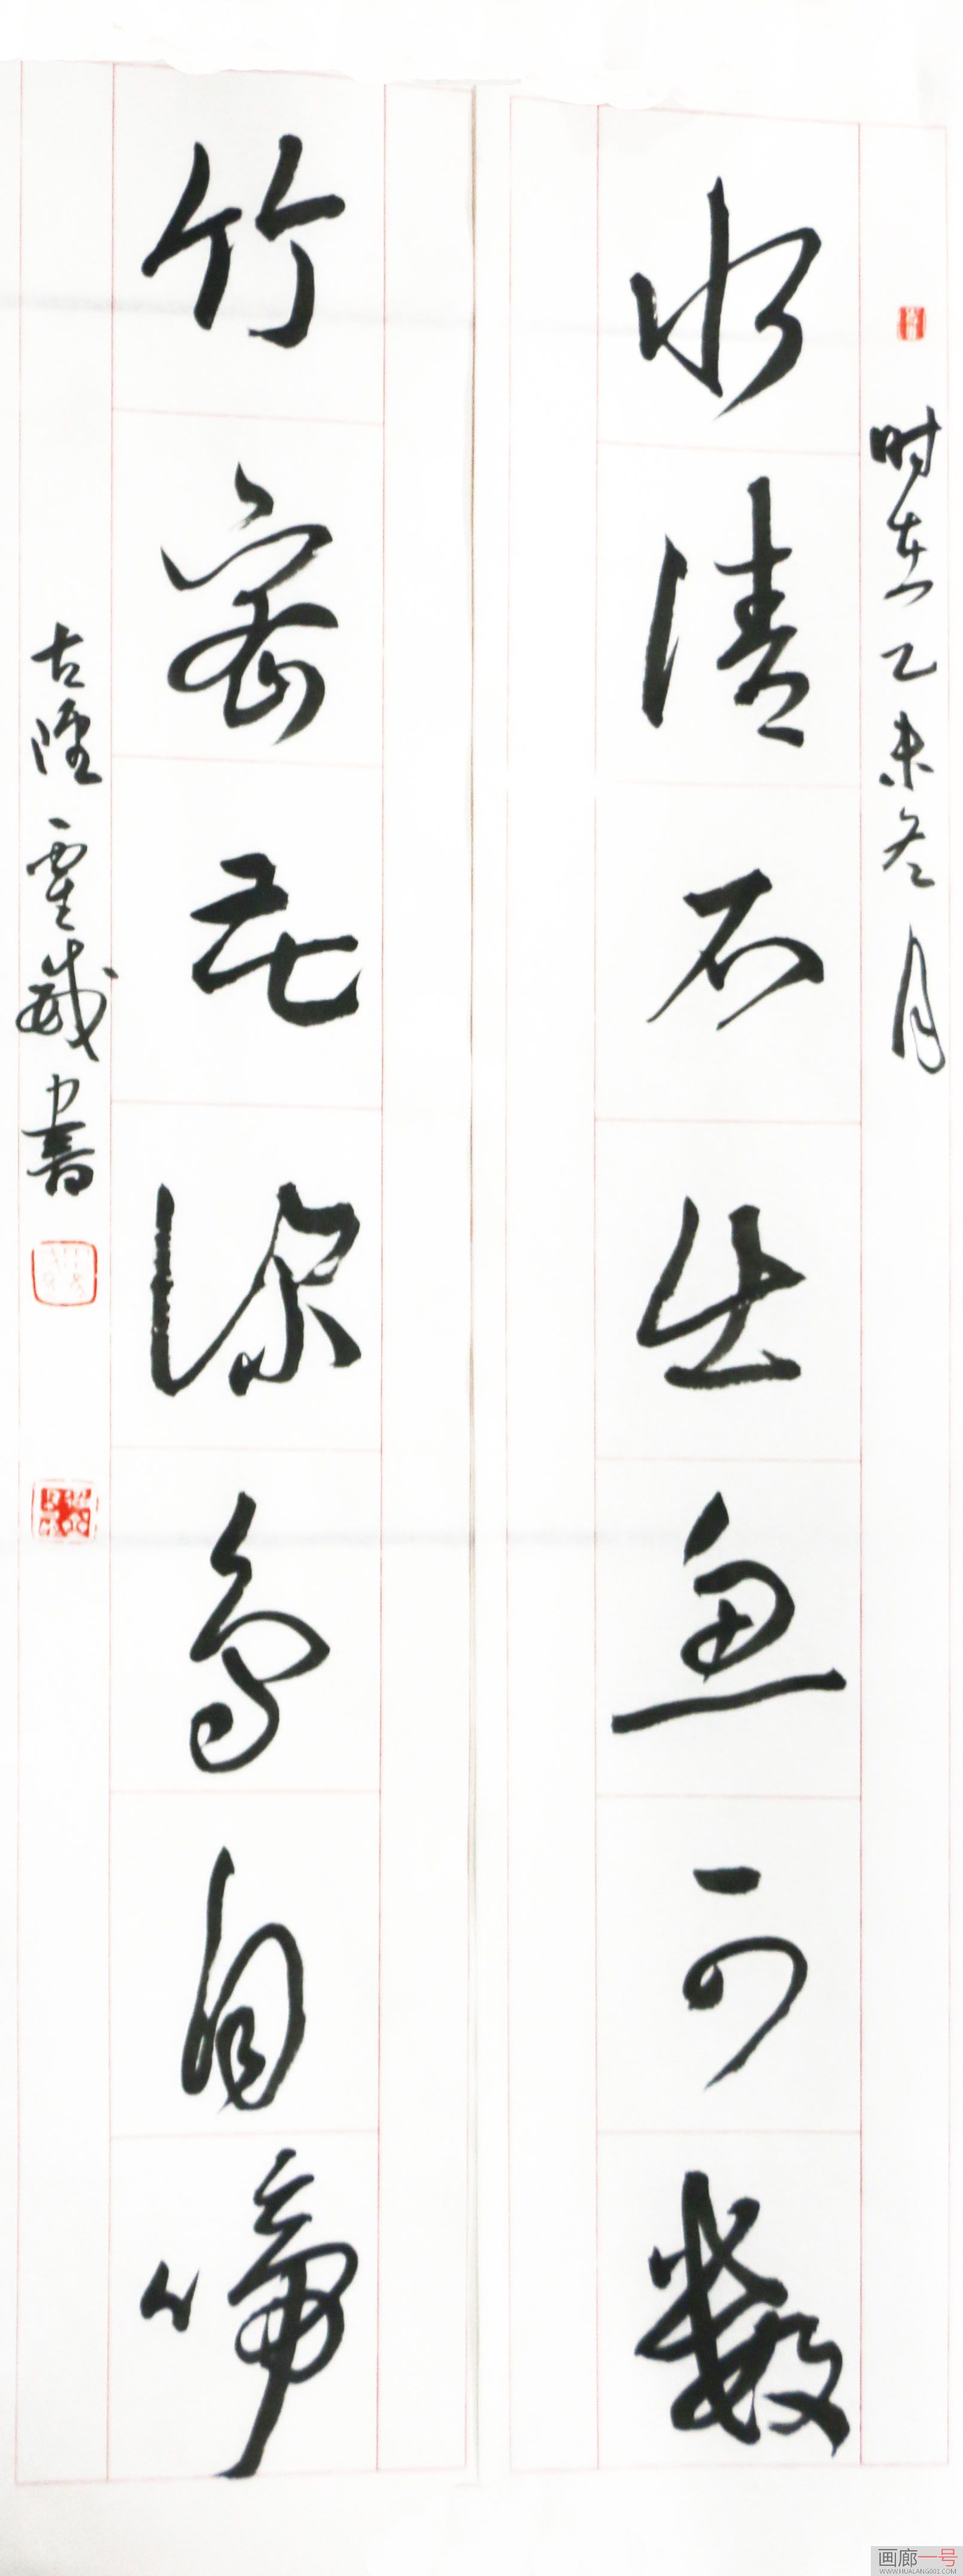 时在乙未冬月
水清石出鱼可数
竹密花深鸟自啼
古 書
画廊一号
WWW.HUALANG001.COM